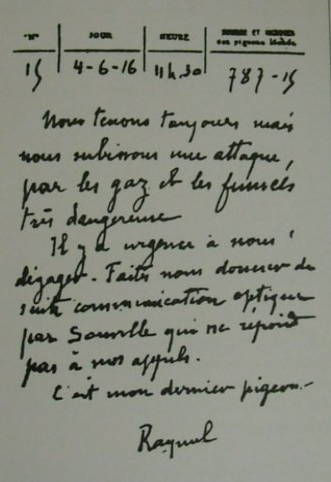 "Nº" JOUR HEURE NOMBRE ET NUMÉROS des pigeons lâchés
15 4-6-16 11h.30 787-15
Nous tenons toujours mais
nous subissons une attaque,
par les gaz et les fumées
très dangereuse
Il y a urgence à nous
dégager - Faites nous donner de
suite communication optique
par Souville qui ne répond
pas à nos appels.
C'est mon dernier pigeon.-
Raynal